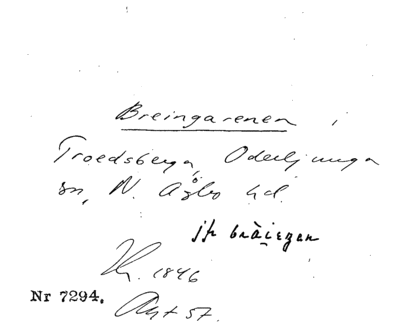 Breingarenen i
Troedsberga, Oderljunga
sn, N. Åsbo hd.
jfr bräiegan
1846
Nr 7294.
Akt 57.